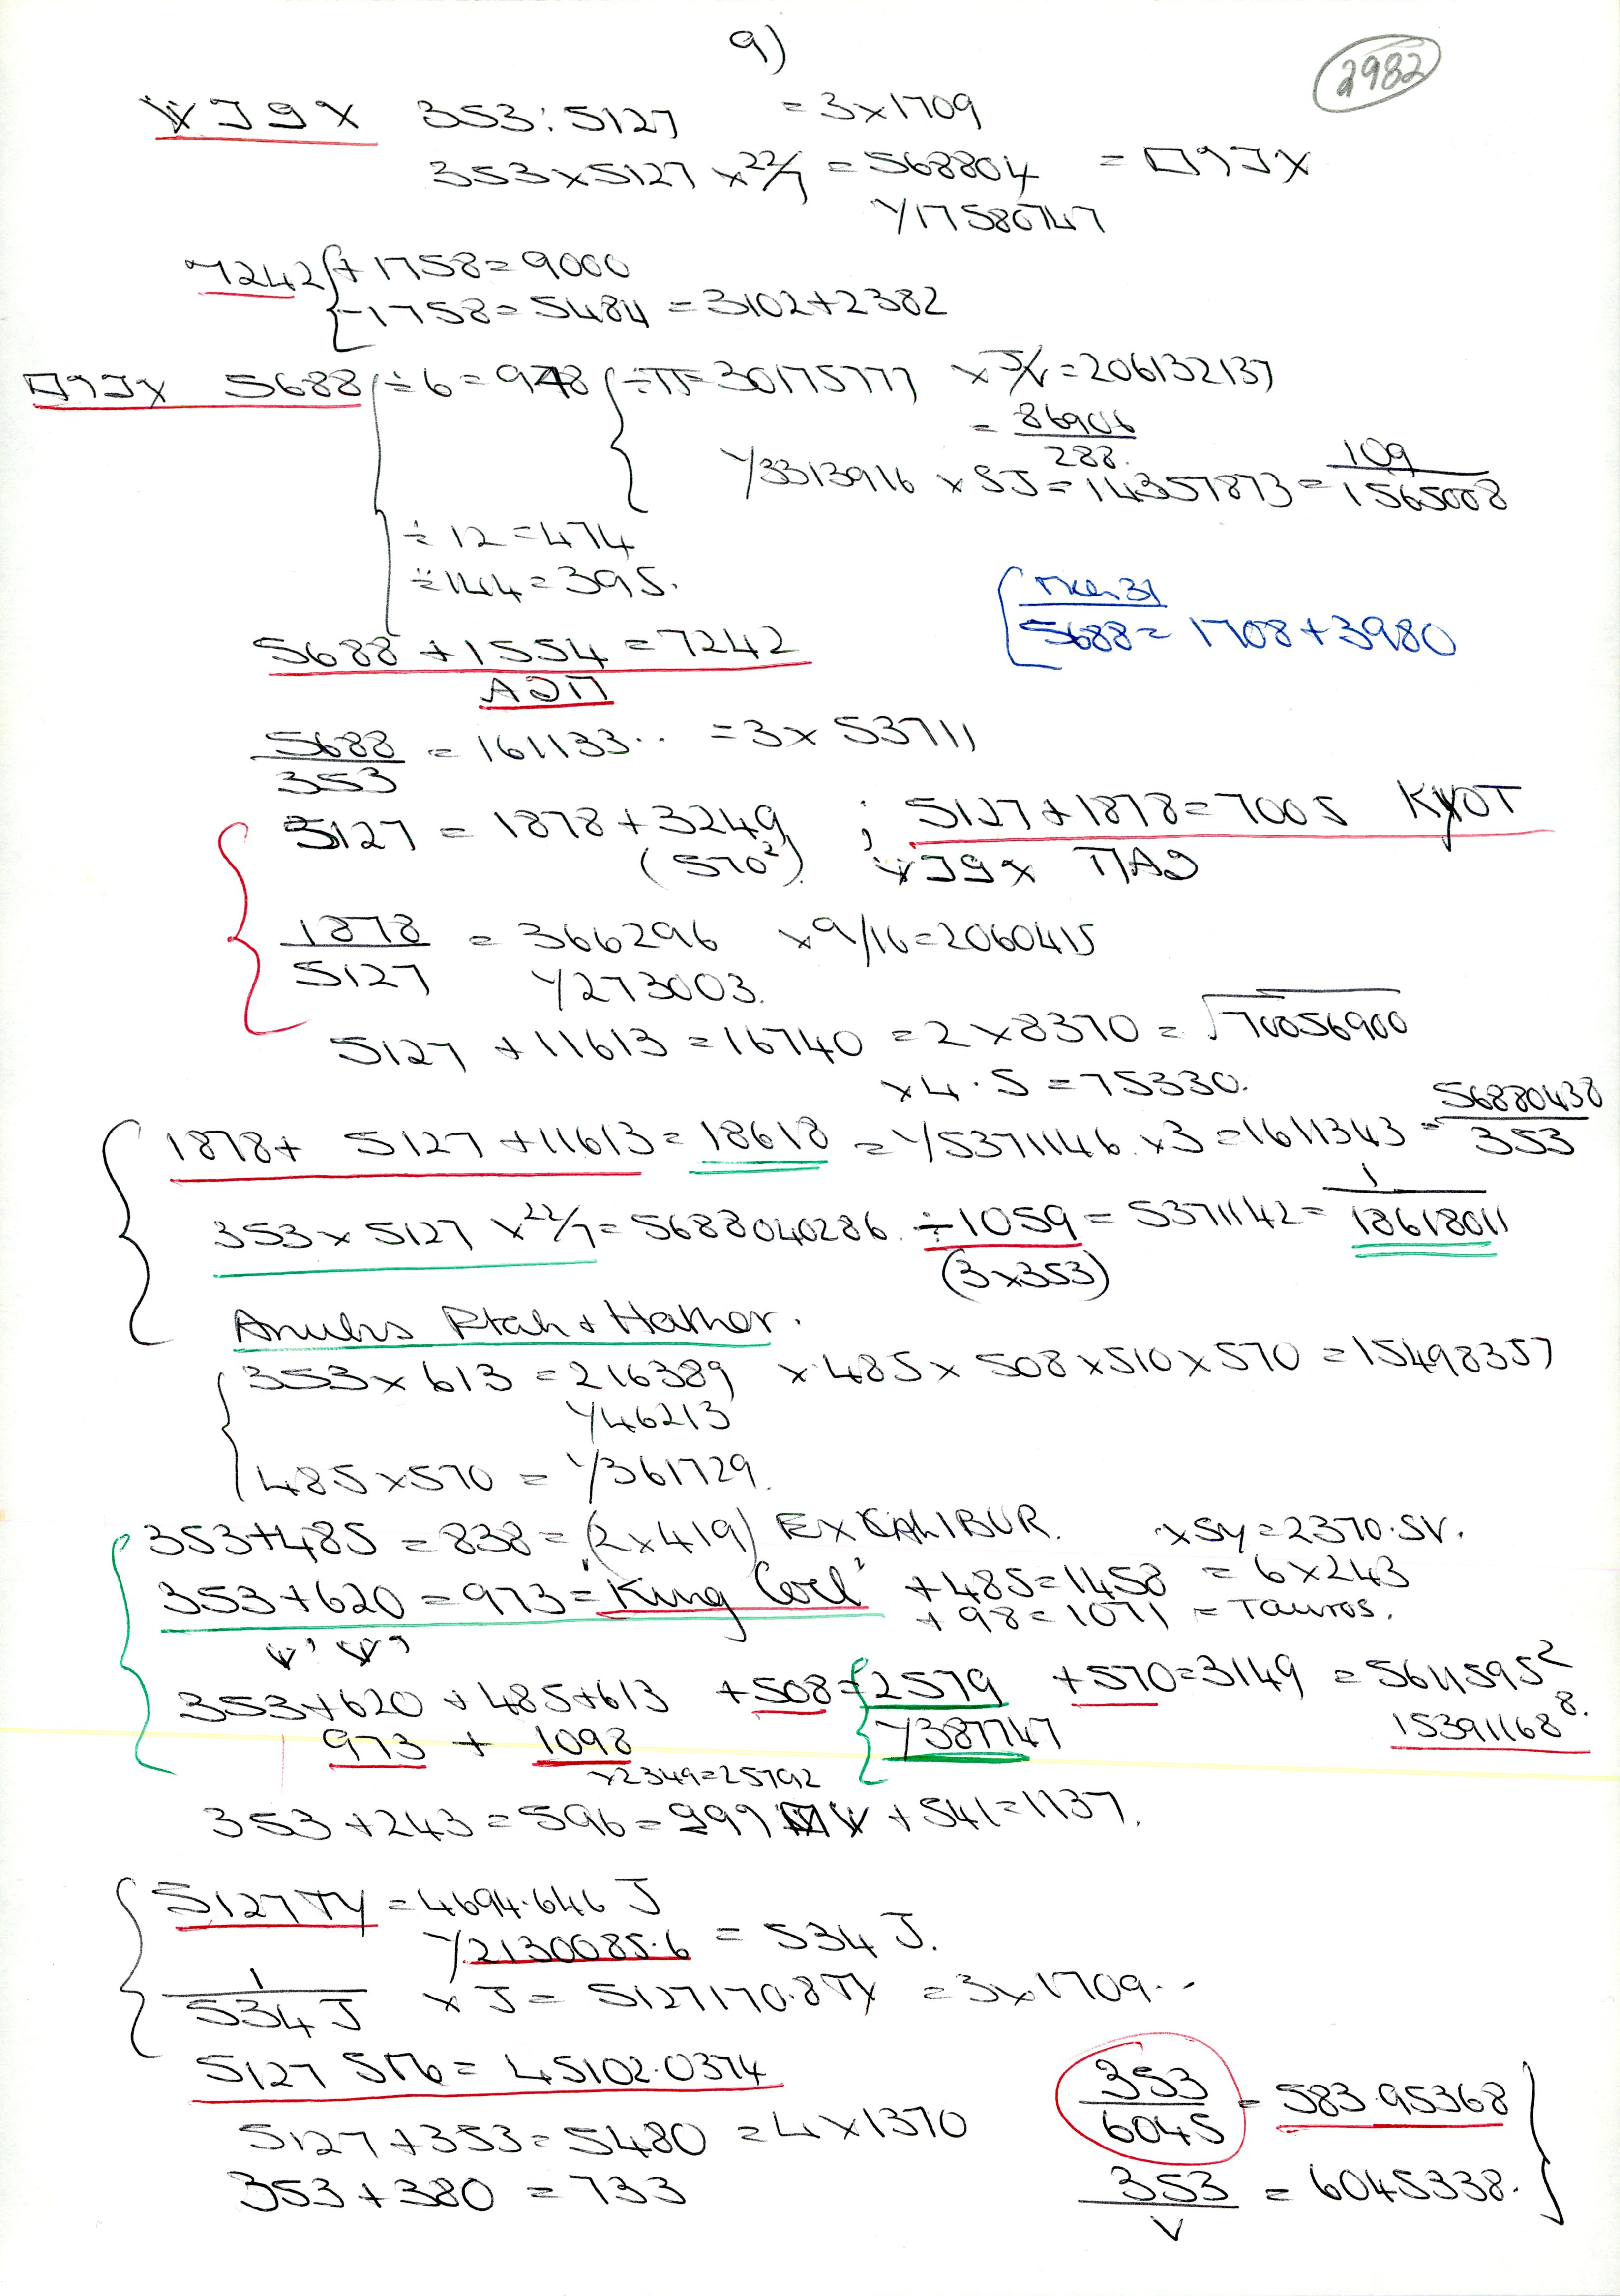 9)
2982
353 : 5127 = 3 x 1709
353 x 5127 x 22/7 = 568804
1/17580747
7242 { + 1758 = 9000
- 1758 = 5484 = 3102 + 2382
5688 { ÷ 6 = 948 { ÷ π = 30175777 = 206132137
= 86906/288
1/3313916 x SJ = 14357873 = 109/1565008
÷ 12 = 474
÷ 144 = 395.
5688 = 1708 + 3980
5688 + 1554 = 7242
5688/353 = 161133.. = 3 x 53711
5127 = 1878 + 3249 ; 5127 + 1878 = 7005
(570²)
1878/5127 = 366296 x 9/16 = 2060415
1/273003.
5127 + 11613 = 16740 = 2 x 8370 = √70056900
x 4.5 = 75330.
1878 + 5127 + 11613 = 18618 = 1/5371146. x 3 = 1611343 = 56880438/353
353 x 5127 x 22/7 = 5688040286. ÷ 1059 = 5371142 = 1/18618011
(3 x 353)
Anubis Ptah + Hathor.
353 x 613 = 216389 x 485 x 508 x 510 x 570 = 15498357
1/46213
485 x 570 = 1/361729.
353 + 485 = 838 = (2 x 419) EXCALIBUR. x SY = 2370.SV.
353 + 620 = 973 = 'King Coel' + 485 = 1458 = 6 x 243
+ 98 = 1071 = Tauros.
353 + 620 + 485 + 613 + 508 = { 2579 + 570 = 3149 = 5611595²
973 + 1098 1/387747 15391168⁸.
x 2349 = 25792
353 + 243 = 596 + 541 = 1137.
5127 TY = 4694.646 J
1/2130085.6 = 534 J.
1/534 J x J = 5127170.8 TY = 3 x 1709..
5127 = 45102.0374
353/6045 = 583.95368
5127 + 353 = 5480 = 4 x 1370
353 + 380 = 733
353/V = 6045338.